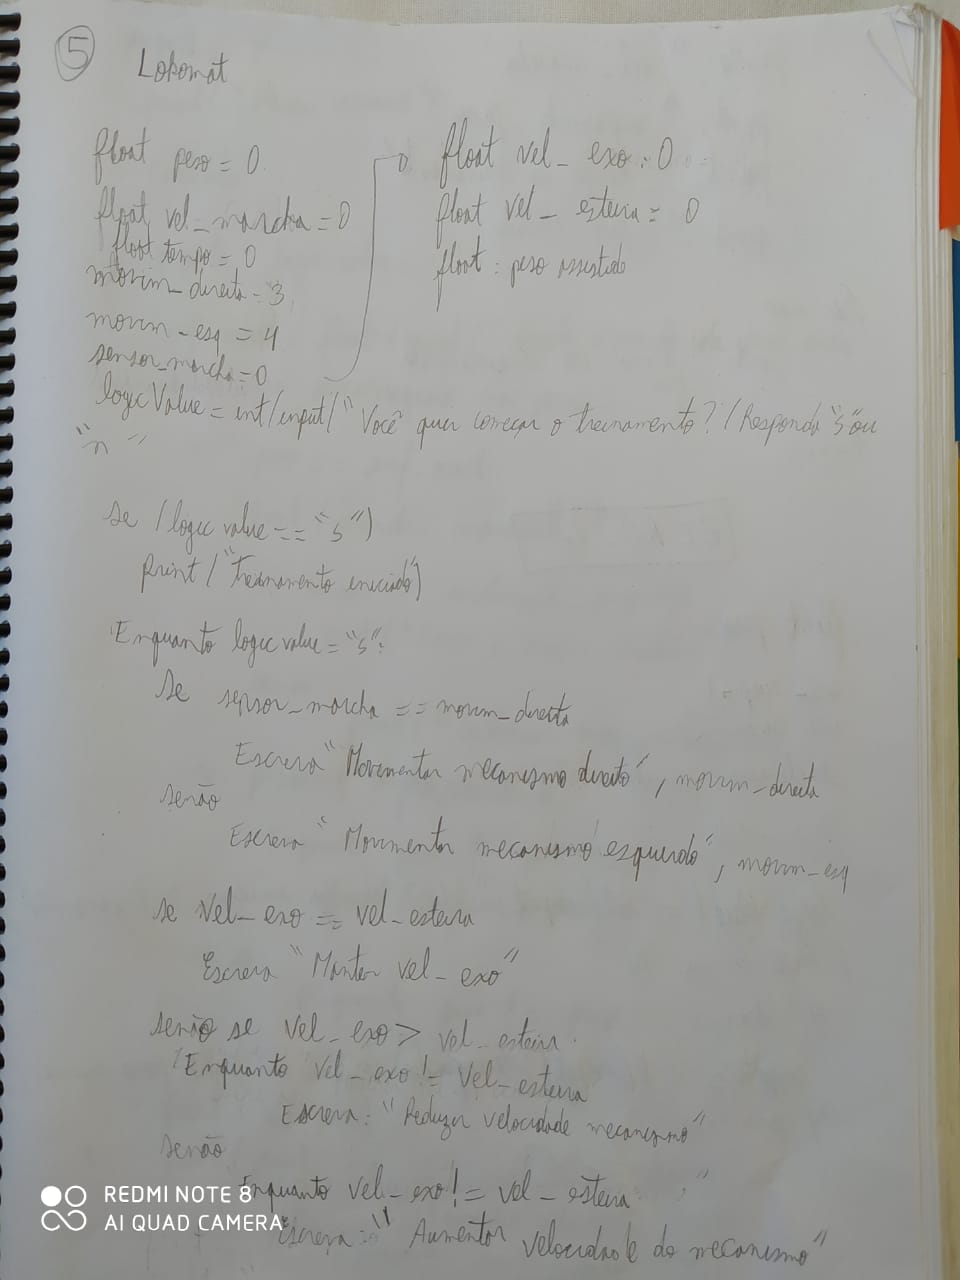 5
Lokomat
float peso = 0
float vel_marcha = 0
float tempo = 0
movim_direita = 3
movim_esq = 4
sensor_marcha = 0
float vel_exo = 0
float vel_esteira = 0
float : peso assistido
logicValue = int/input/"Você quer começar o treinamento? / Responda "s" ou
"n"
se (logic value == "s")
print ("Treinamento iniciado")
Enquanto logic value = "s":
Se sensor_marcha == movim_direita
Escreva "Movimentar mecanismo direito", movim_direita
senão
Escreva "Movimentar mecanismo esquerdo", movim_esq
se Vel_exo == vel_esteira
Escreva "Manter vel_exo"
senão se vel_exo > vel_esteira
Enquanto vel_exo != vel_esteira
Escreva: "Reduzir velocidade mecanismo"
senão
Enquanto vel_exo != vel_esteira
Escreva: "Aumentar velocidade do mecanismo"
REDMI NOTE 8
AI QUAD CAMERA